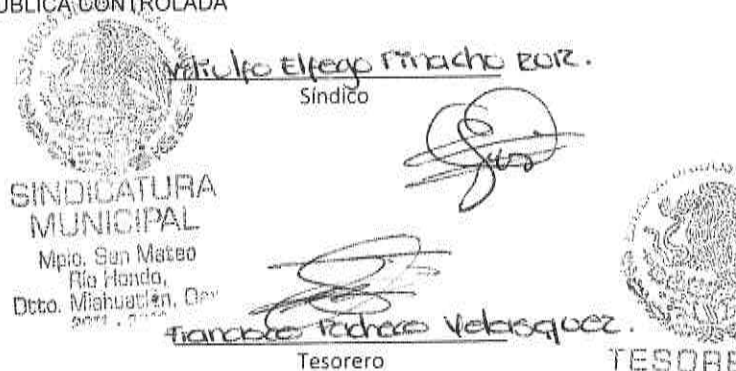 PÚBLICA CONTROLADA
Elfego Pinacho Ruiz.
Síndico
SINDICATURA
MUNICIPAL
Mpio. San Mateo
Río Hondo,
Dtto. Miahuatlán, Oax
Francisco Pacheco Velasquez.
Tesorero
TESORE